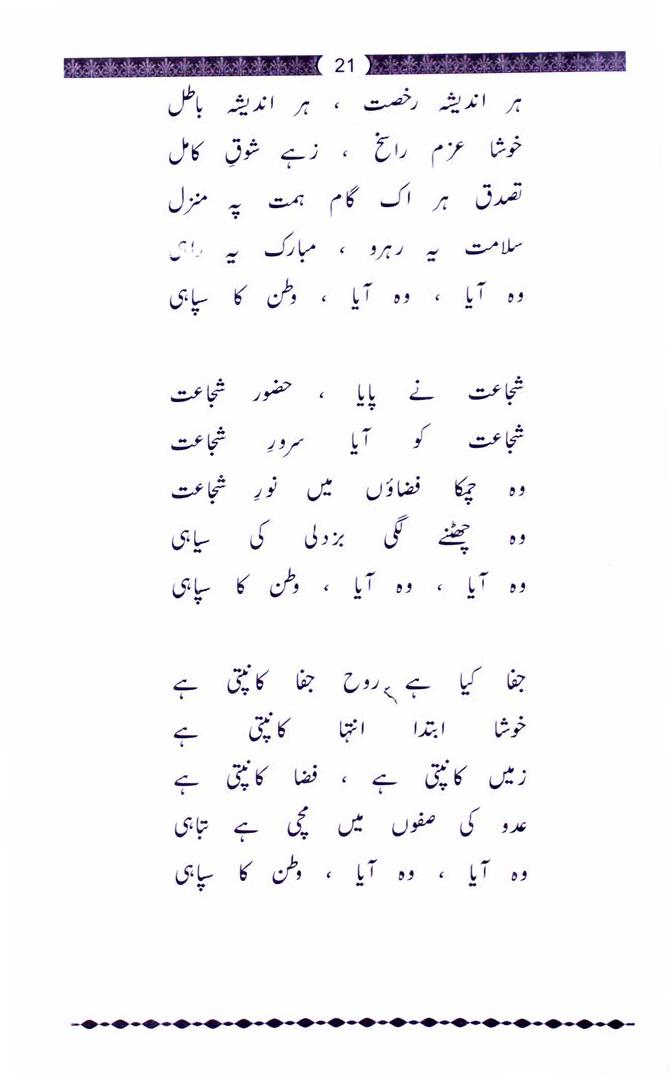 21
ہر اندیشہ رخصت ، ہر اندیشہ باطل
خوشا عزم راسخ ، زہے شوقِ کامل
تصدق ہر اک گام ہمت پہ منزل
سلامت یہ رہرو ، مبارک یہ راہی
وہ آیا ، وہ آیا ، وطن کا سپاہی
شجاعت نے پایا ، حضور شجاعت
شجاعت کو آیا سرورِ شجاعت
وہ چمکا فضاؤں میں نورِ شجاعت
وہ چھٹنے لگی بزدلی کی سیاہی
وہ آیا ، وہ آیا ، وطن کا سپاہی
جفا کیا ہے روح جفا کانپتی ہے
خوشا ابتدا انتہا کانپتی ہے
زمیں کانپتی ہے ، فضا کانپتی ہے
عدو کی صفوں میں مچی ہے تباہی
وہ آیا ، وہ آیا ، وطن کا سپاہی